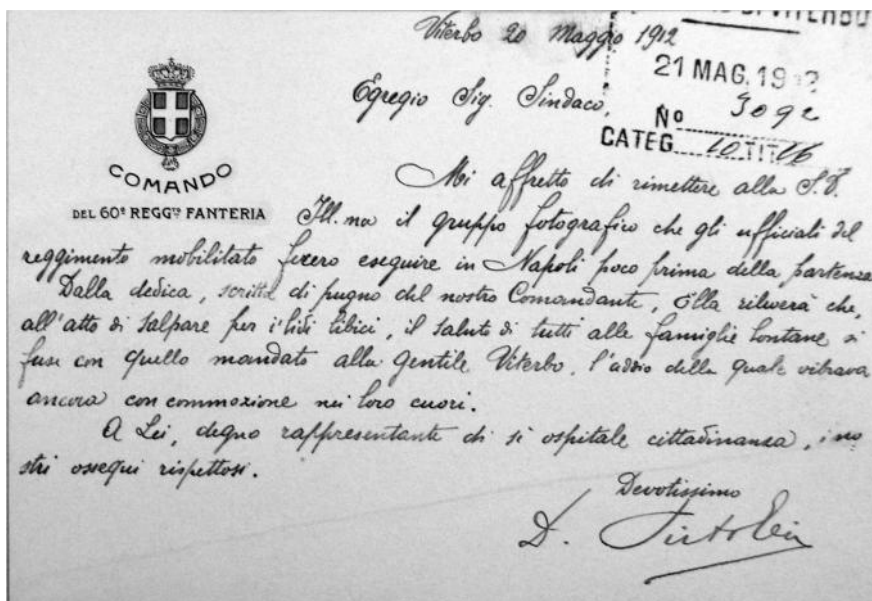 Viterbo 20 Maggio 1912
DI VITERBO
21 MAG. 19
No 3092
CATEG. 10 TIT. 16
Egregio Sig. Sindaco,
COMANDO
DEL 60º REGGTO FANTERIA
Mi affretto di rimettere alla S. V.
Ill.ma il gruppo fotografico che gli ufficiali del
reggimento mobilitato fecero eseguire in Napoli poco prima della partenza
Dalla dedica, scritta di pugno del nostro Comandante, Ella rileverà che,
all'atto di salpare per i lidi libici, il saluto di tutti alle famiglie lontane si
fuse con quello mandato alla gentile Viterbo, l'addio della quale vibrava
ancora con commozione nei loro cuori.
A Lei, degno rappresentante di sì ospitale cittadinanza, i no
stri ossequi rispettosi.
Devotissimo
D.